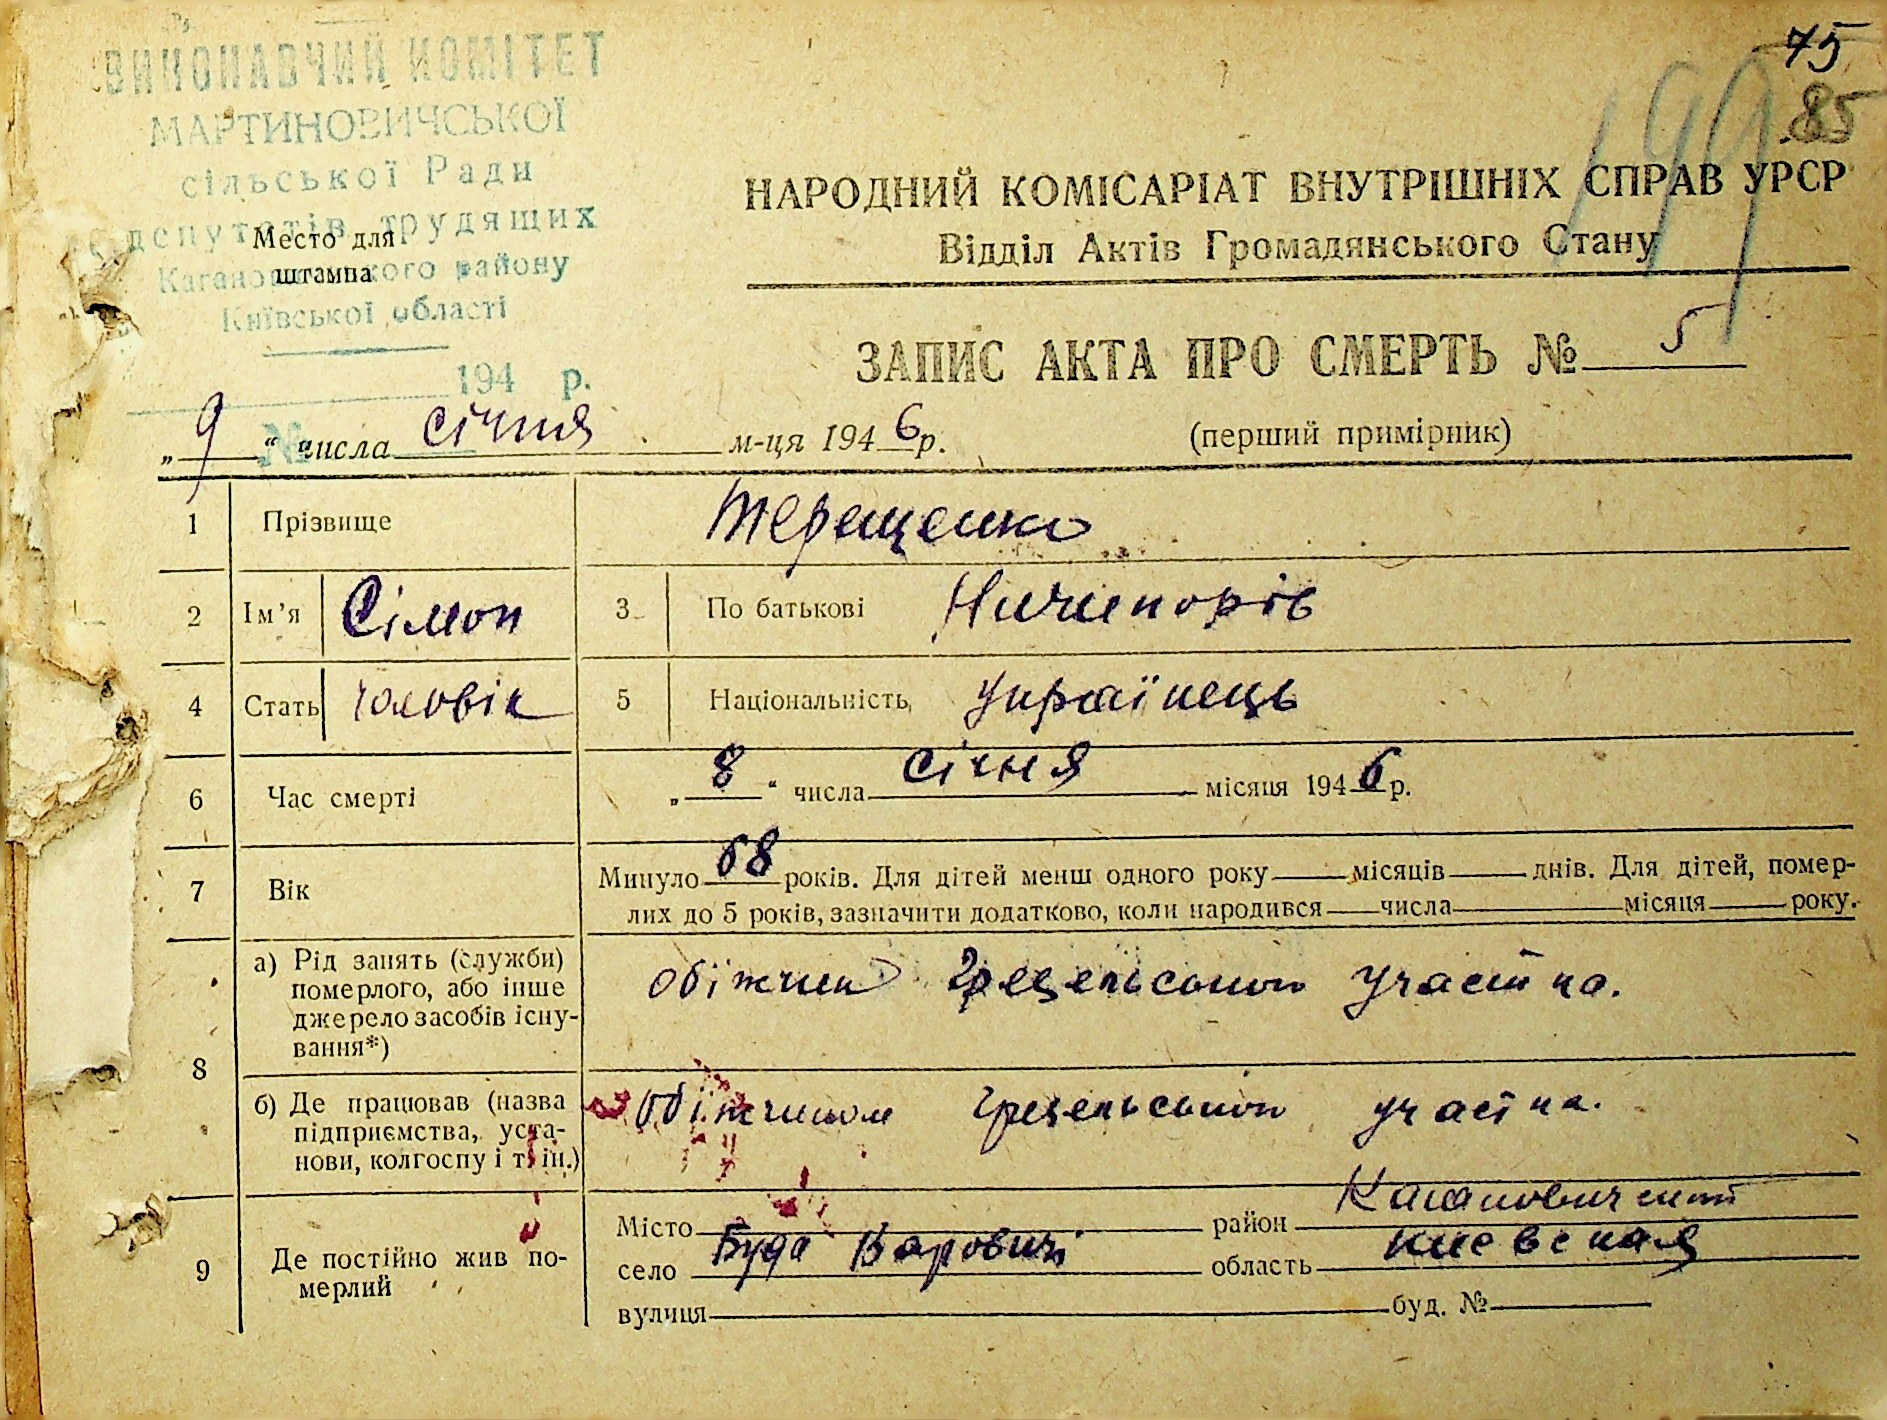 75
85
199
ВИКОНАВЧИЙ КОМІТЕТ
МАРТИНОВИЧСЬКОЇ
сільської Ради
депутатів трудящих
Кагановичського району
Київської області
194 р.
№
Место для
штампа
НАРОДНИЙ КОМІСАРІАТ ВНУТРІШНІХ СПРАВ УРСР
Відділ Актів Громадянського Стану
ЗАПИС АКТА ПРО СМЕРТЬ № 5
„ 9 “ числа січня м-ця 1946 р.
(перший примірник)
1 Прізвище Терещенко
2 Ім’я Сімон 3 По батькові Ничипорів
4 Стать чоловік 5 Національність Українець
6 Час смерті „ 8 “ числа січня місяця 1946 р.
7 Вік Минуло 68 років. Для дітей менш одного року місяців днів. Для дітей, помер-
лих до 5 років, зазначити додатково, коли народився числа місяця року.
8 а) Рід занять (служби)
померлого, або інше
джерело засобів існу-
вання*)
обїжчик участка.
б) Де працював (назва
підприємства, уста-
нови, колгоспу і т. ін.)
Обїжчиком участка.
9 Де постійно жив по-
мерлий
Місто район Кагановичский
село Буда Варовичі область Киевская
вулиця буд. №